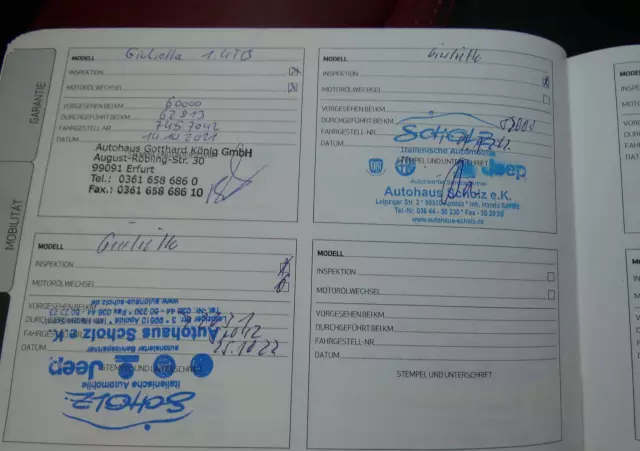 GARANTIE
MOBILITÄT
MODELL Giulietta 1.4TB
INSPEKTION
MOTORÖLWECHSEL
VORGESEHEN BEI KM 60000
DURCHGEFÜHRT BEI KM 62813
FAHRGESTELL-NR. 7457042
DATUM 14.10.2021
Autohaus Gotthard König GmbH
August-Röbling-Str. 30
99091 Erfurt
Tel.: 0361 658 686 0
Fax.: 0361 658 686 10
MODELL Giulietta
INSPEKTION
MOTORÖLWECHSEL
VORGESEHEN BEI KM
DURCHGEFÜHRT BEI KM
FAHRGESTELL-NR.
DATUM
SCHOLZ
Italienische Automobile
STEMPEL UND UNTERSCHRIFT
Jeep
Autorisierter Servicepartner
Autohaus Scholz e.K.
Leipziger Str. 2 * 99510 Apolda * Inh. Harald Scholz
Tel.-Nr. 036 44 - 50 230 * Fax - 50 23 23
www.autohaus-scholz.de
MODELL Giulietta
INSPEKTION
MOTORÖLWECHSEL
VORGESEHEN BEI KM
DURCHGEFÜHRT BEI KM
FAHRGESTELL-NR.
DATUM 25.10.22
STEMPEL UND UNTERSCHRIFT
SCHOLZ
Italienische Automobile
Jeep
autorisierter Servicepartner
Autohaus Scholz e.K.
www.autohaus-scholz.de
MODELL
INSPEKTION
MOTORÖLWECHSEL
VORGESEHEN BEI KM
DURCHGEFÜHRT BEI KM
FAHRGESTELL-NR.
DATUM
STEMPEL UND UNTERSCHRIFT